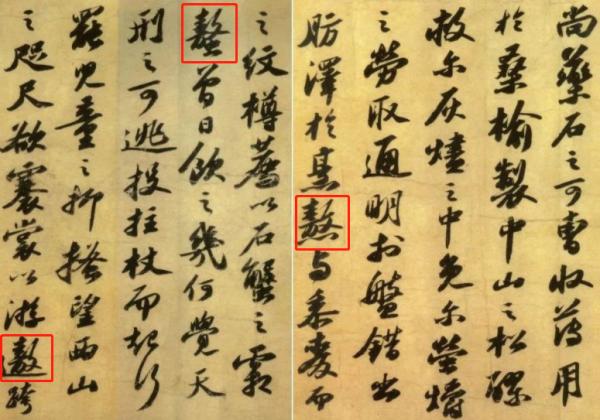 尚藥石之可曹收薄用
於桑榆製中山之松醪
救尔灰燼之中免尔螢爝
之勞取通明於盤錯出
肪澤於烹熬與黍麥而
之紋樽薦以石蟹之霜
螯曾日飲之幾何覺天
刑之可逃投拄杖而起行
罷兒童之抑搔望西山
之咫尺欲褰裳以游遨跨